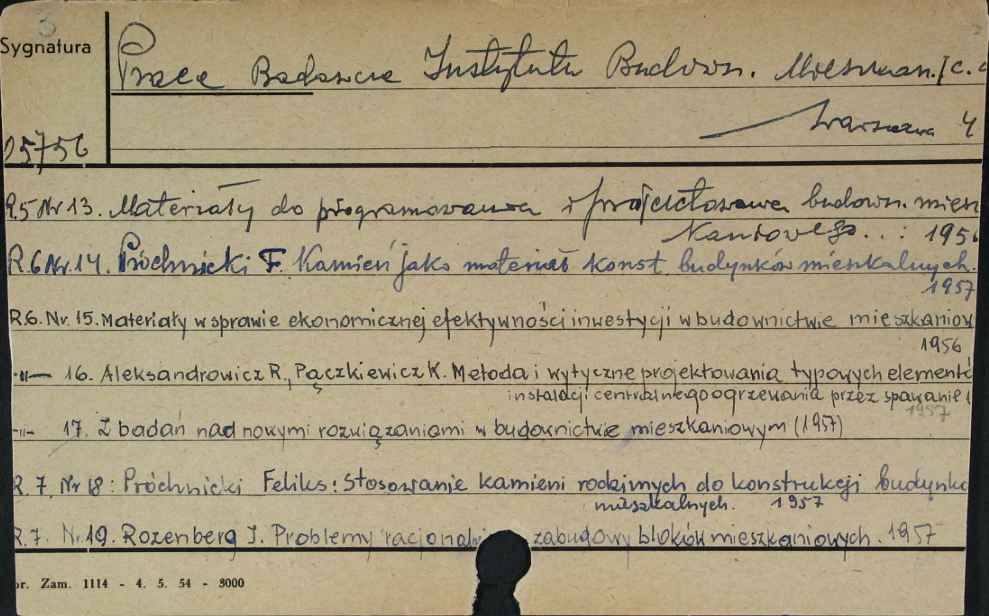 Sygnatura
Prace Badawcze Instytutu Budown. Mieszkan. /c.d
Warszawa 4
05756
R.5 Nr 13. Materiały do programowania i projektowania budown. miesz
kaniowego...: 1956
R.6 Nr. 14. Próchnicki F. Kamień jako materiał konst budynków mieszkalnych.
1957
R.6. Nr. 15. Materiały w sprawie ekonomicznej efektywności inwestycji w budownictwie mieszkaniow
1956
-"- 16. Aleksandrowicz R., Pączkiewicz K. Metoda i wytyczne projektowania typowych elementó
instalacji centralnego ogrzewania przez spawanie
1957
-"- 17. Z badań nad nowymi rozwiązaniami w budownictwie mieszkaniowym (1957)
R. 7, Nr 18: Próchnicki Feliks: Stosowanie kamieni rodzimych do konstrukcji budynkó
mieszkalnych. 1957
R.7. Nr. 19. Rozenberg J. Problemy racjonal zabudowy bloków mieszkaniowych. 1957
or. Zam. 1114 - 4. 5. 54 - 3000